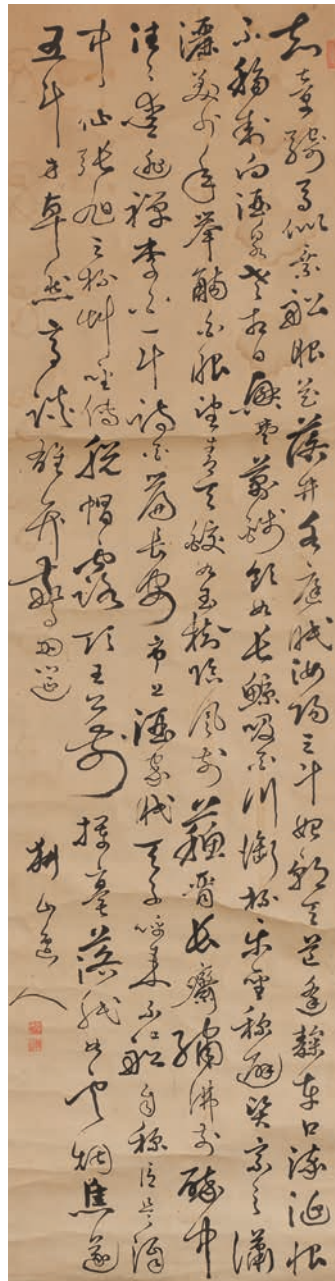 知章騎馬似乘船眼花落井水底眠汝陽三斗始朝天道逢麴車口流涎恨
不移封向酒泉左相日興費萬錢飲如長鯨吸百川銜杯樂聖稱避賢宗之瀟
灑美少年舉觴白眼望青天皎如玉樹臨風前蘇晉長齋繡佛前醉中
往往愛逃禪李白一斗詩百篇長安市上酒家眠天子呼來不上船自稱臣是酒
中仙張旭三杯草聖傳脫帽露頂王公前揮毫落紙如雲煙焦遂
五斗方卓然高談雄辯驚四筵
山人